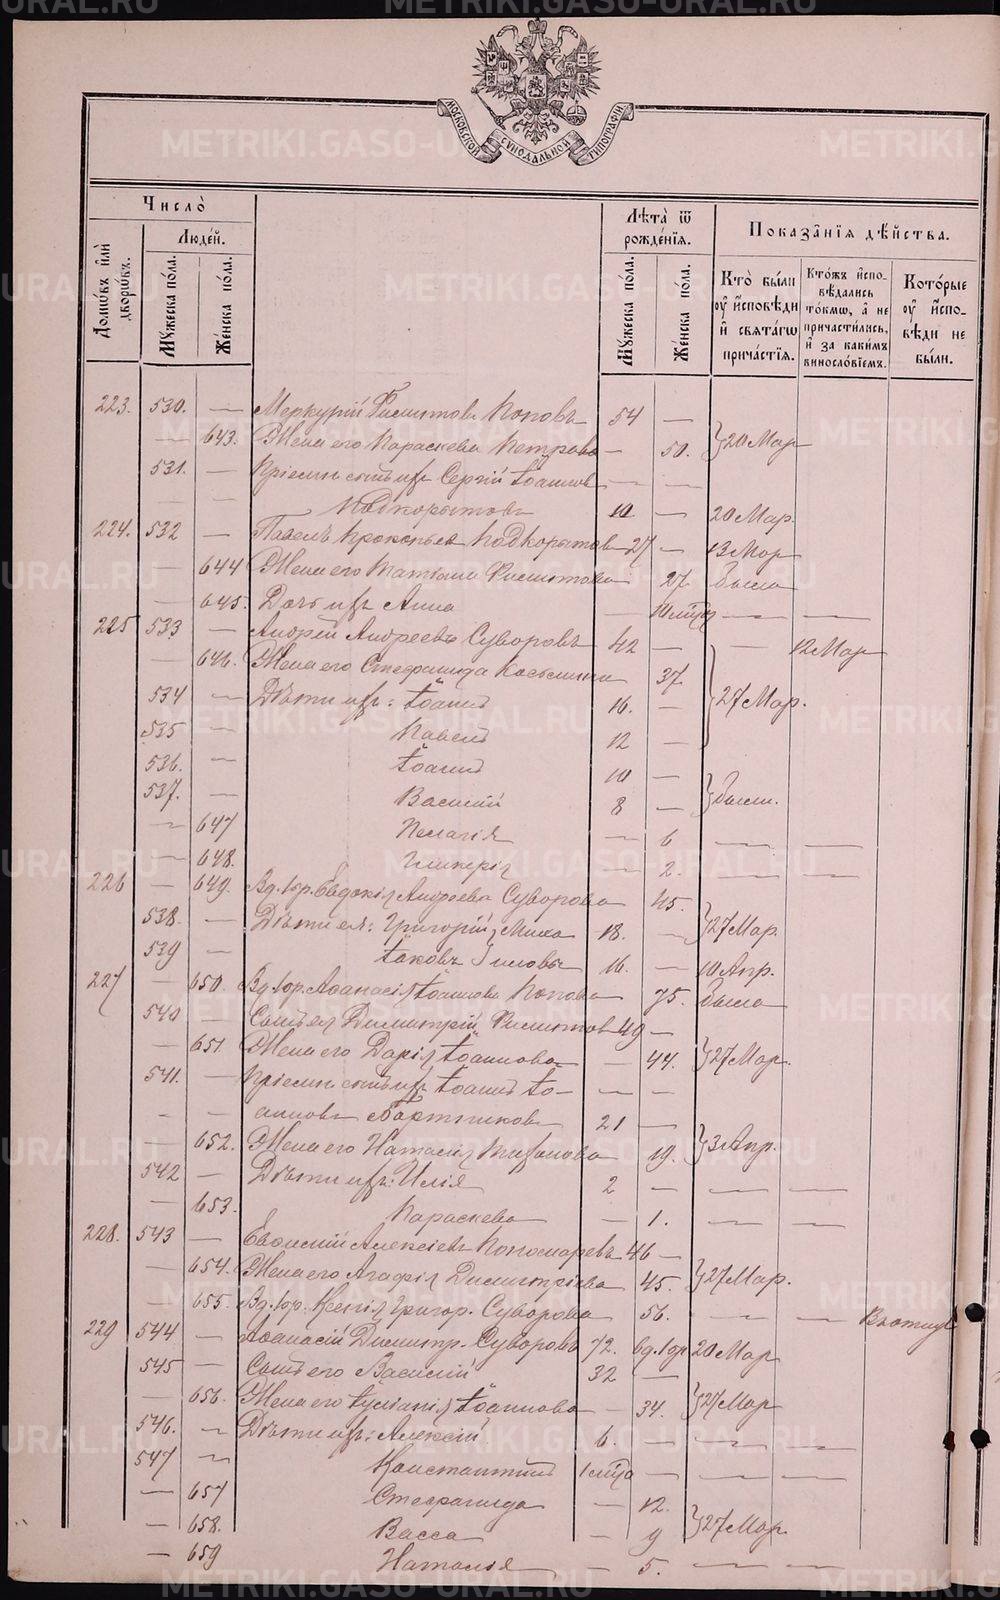 МОСКОВСКОЙ СѴНОДАЛЬНОЙ ТИПОГРАФІИ
Число̀
Домѡ́въ и҆лѝ дворѡ́въ.
Люде́й.
Мꙋ́жеска по́ла.
Же́нска по́ла.
Лѣ̑та ѿ рожде́нїѧ.
Мꙋ́жеска по́ла.
Же́нска по́ла.
Показа̑нїѧ дѣ́йства.
Кто̀ бы́ли ᲂу҆ и҆сповѣ́ди и҆ свѧта́гѡ прича́стїѧ.
Кто́жъ и҆спо-вѣ́дались то́кмѡ, а҆ не причасти́лись, и҆ за каки́мъ виносло́вїемъ.
Кото́рые ᲂу҆ и҆спо-вѣ́ди не бы́ли.
223. 530. — Меркурій Филиппов Поповъ 54 —
— 643. Жена его Параскева Петрова — 50. } 20 Мар
531. — Пріемн. сынъ их Сергій Іоаннов — —
— — Подкорытовъ 10 — 20 Мар.
224. 532 — Павелъ Прокопьев Подкорытов 27 — 13 Мар
— 644 Жена его Татіана Филиппова 27. была
— 645. Дочь их Анна — 10 мца — —
225 533 — Андрей Андреевъ Суворовъ 42 — — 12 Мар
— 646. Жена его Стефанида Косьмина 37.
534 — Дѣти их: Іоаннъ 16. — } 27 Мар.
535 — Павелъ 12 —
536. — Іоаннъ 10 —
537. — Василій 8 — } были.
— 647 Пелагія — 6 — —
— 648. Гликерія — 2. — —
226 — 649. Вд. кр. Евдокія Андреева Суворова 45.
538. — Дѣти ея: Григорій, Миха 18. — } 27 Мар.
539 — Іаковъ 16. — 10 Апр.
227 — 650. Вд. кр. Афанасія Іоаннова Попова 75. была
540 — Сынъ ея Димитрій Филиппов 49 —
— 651. Жена его Дарія Іоаннова — 44. } 27 Мар.
541. — Пріемн. сынъ их Іоаннъ Іо- — —
— — анновъ Бортников 21 —
— 652. Жена его Наталія 19. } 3 Апр.
542 — Дѣти их: Илія 2 — — —
— 653. Параскева — 1. — —
228. 543 — Евфимій Алексіевъ Пономаревъ 46 —
— 654. Жена его Агафія Димитріева 45. } 27 Мар.
— 655. Вд. кр. Ксенія Григор. Суворова 56. — —
229 544 — Афанасій Димитр. Суворовъ 72. вд. кр 20 Мар
545 — Сынъ его Василій 32 —
— 656. Жена его Іуліанія Іоаннова — 34. } 27 Мар
546. — Дѣти их: Алексій 6. — — —
547 — Константинъ 1 мца — — —
— 657 Стефанида — 12.
— 658. Васса — 9 } 27 Мар.
— 659 Наталья — 5. — —
METRIKI.GASO-URAL.RU